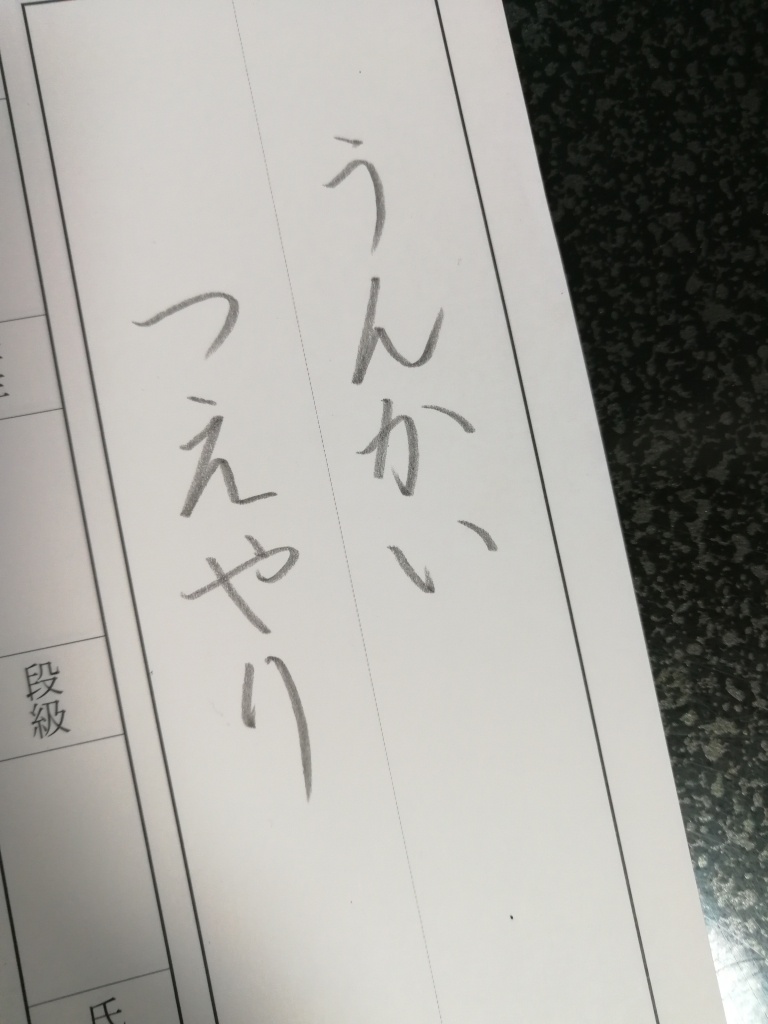 うんかい
つえやり
段級
氏